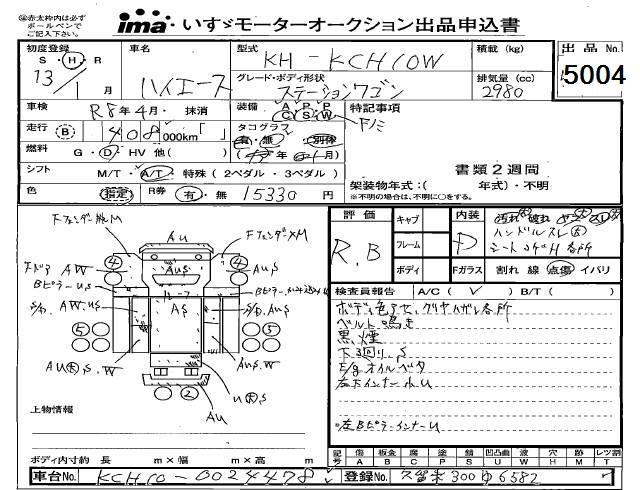 ㊟赤太枠内は必ず
ボールペンで
ご記入下さい。
ima いすゞモーターオークション出品申込書
初度登録 車名 型式 積載 (kg) 出品 No.
S・H・R ハイエース KH - KCH10W 5004
13/1月 グレード・ボディ形状 排気量 (cc)
ステーションワゴン 2980
車検 R8年4月・抹消 装備 A P P C S W 特記事項
走行 B 408 000km「 」 タコグラフ 有・無 別体
燃料 G・D・HV 他( ) 年 月
シフト M/T・A/T 特殊 (2ペダル・3ペダル) 書類2週間
色 指定 R券 有・無 15330円 架装物年式:( 年式)・不明
※不明の場合は、不明に○をする。
評価 R.B キャブ フレーム ボディ 内装 D
ハンドルスレ
シートコゲH各所
Fガラス 割れ 線 点傷 イバリ
検査員報告 A/C ( ✓ ) B/T ( )
ボディ色アセ、クリヤハガレ各所
ベルト鳴き
黒煙
下回り、S
E/gオイルベタ
左下インナーU
※左BピラーインナーU
FフェンダーM
FフェンダーM
AU
Fドア AW
④ ④
AUS
AUS
BピラーU,S
ルーフ
S/D. AW.US
S/D. AUS
⑤ ⑤
AUS.W
U,S
②
AU
上物情報
ボディ内寸約 長 m×幅 m×高 m
記号 傷 A 板金 B 腐 C 凹 P 錆 S 凹凸曲 U 波 W 穴 H 跡 M レツ割 T
車台No. KCH10-0024478 登録No. 久留米300ゆ6582